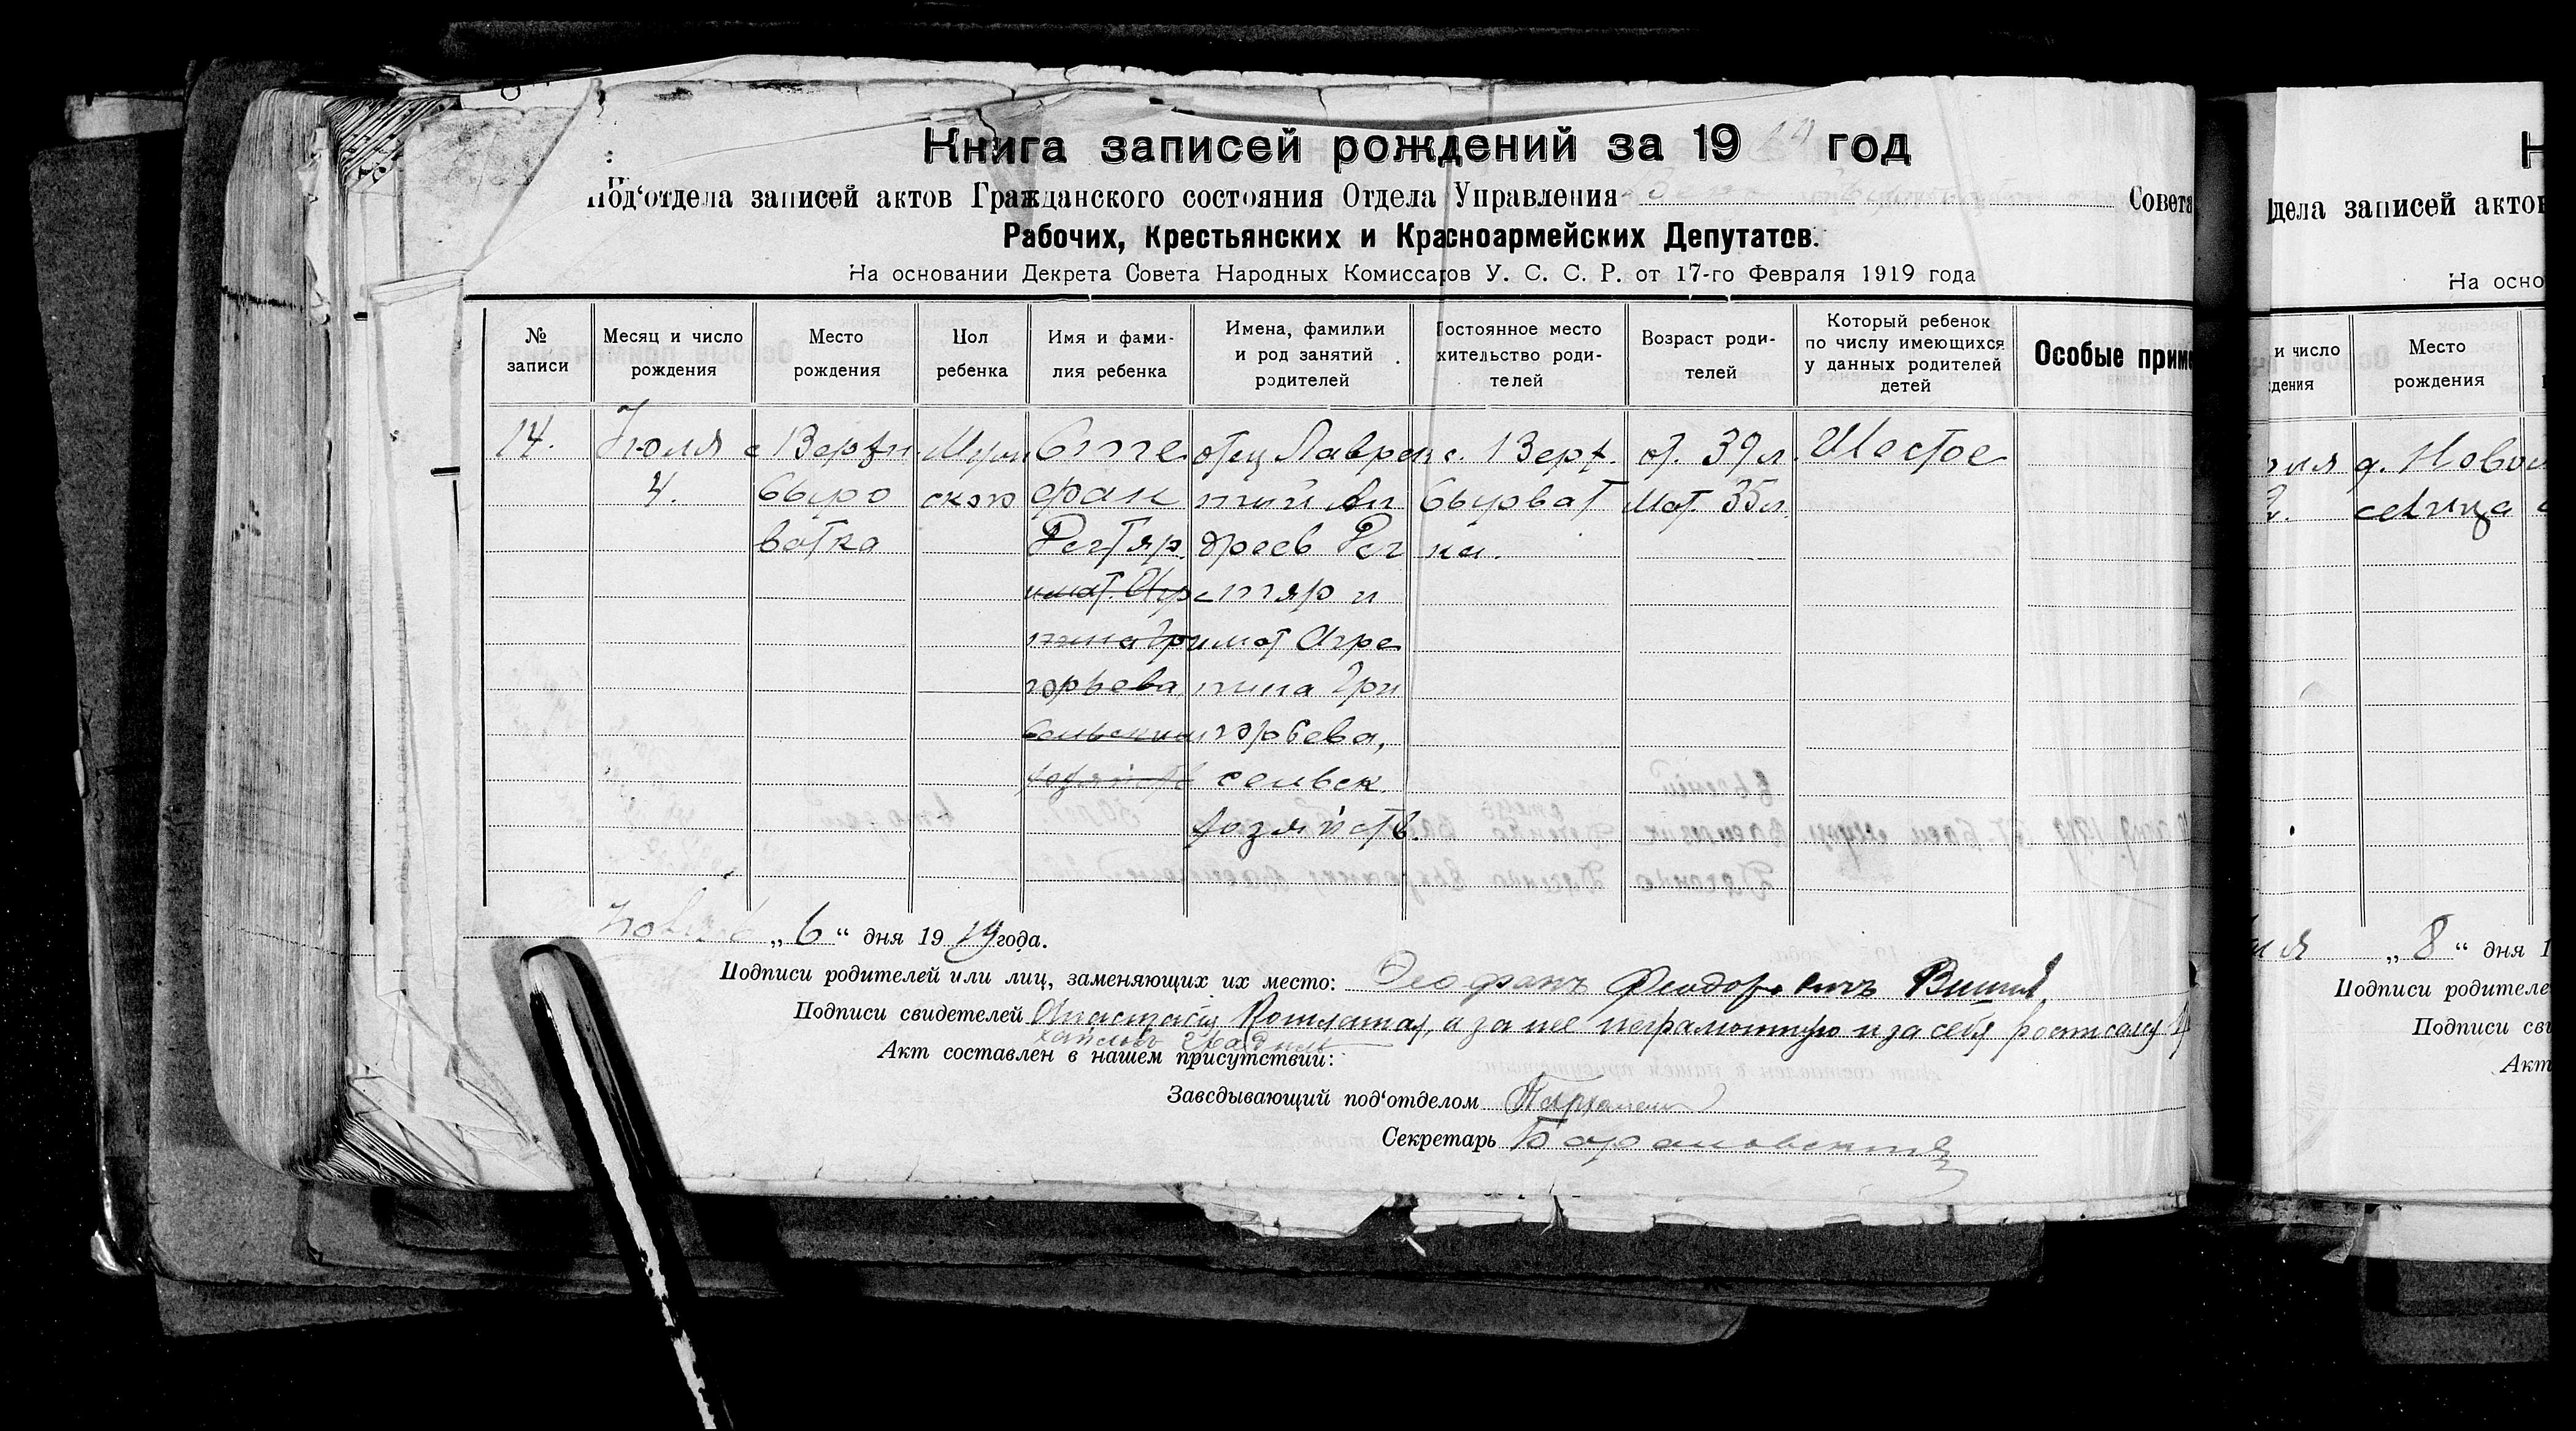 Книга записей рождений за 1919 год
Под'отдела записей актов Гражданского состояния Отдела Управления Совета
Рабочих, Крестьянских и Красноармейских Депутатов.
На основании Декрета Совета Народных Комиссаров У. С. С. Р. от 17-го Февраля 1919 года
№ записи
Месяц и число рождения
Место рождения
Пол ребенка
Имя и фамилия ребенка
Имена, фамилии и род занятий родителей
Постоянное место жительство родителей
Возраст родителей
Который ребенок по числу имеющихся у данных родителей детей
Особые приме
14.
Июля
4.
с Верхн.
Сыро
ватка
Муж
ского
Сте
фан
Дегтяр.
имат. Агр
пина Гри
горьева
сельским
хозяйств
отец Лаврен
тий Ан
дреев Дег
тяр и
имат Агре
пина Гри
горьева,
сельск.
хозяйств.
с. Верх.
Сыроват
ка.
от. 39 л.
Мат. 35 л.
Шестое
„6“ дня 1919 года.
Подписи родителей или лиц, заменяющих их место: Феофанъ Феодоровичъ
Подписи свидетелей Анастасія а за нее неграмотную и за себя росписался
Акт составлен в нашем присутствии:
Заведывающий под'отделом
Секретарь Барановский
Н
дела записей актов
На осно
и число
дения
Место
рождения
д. Новой
сельца
„8“ дня 1
Подписи родителе
Подписи сви
Акт